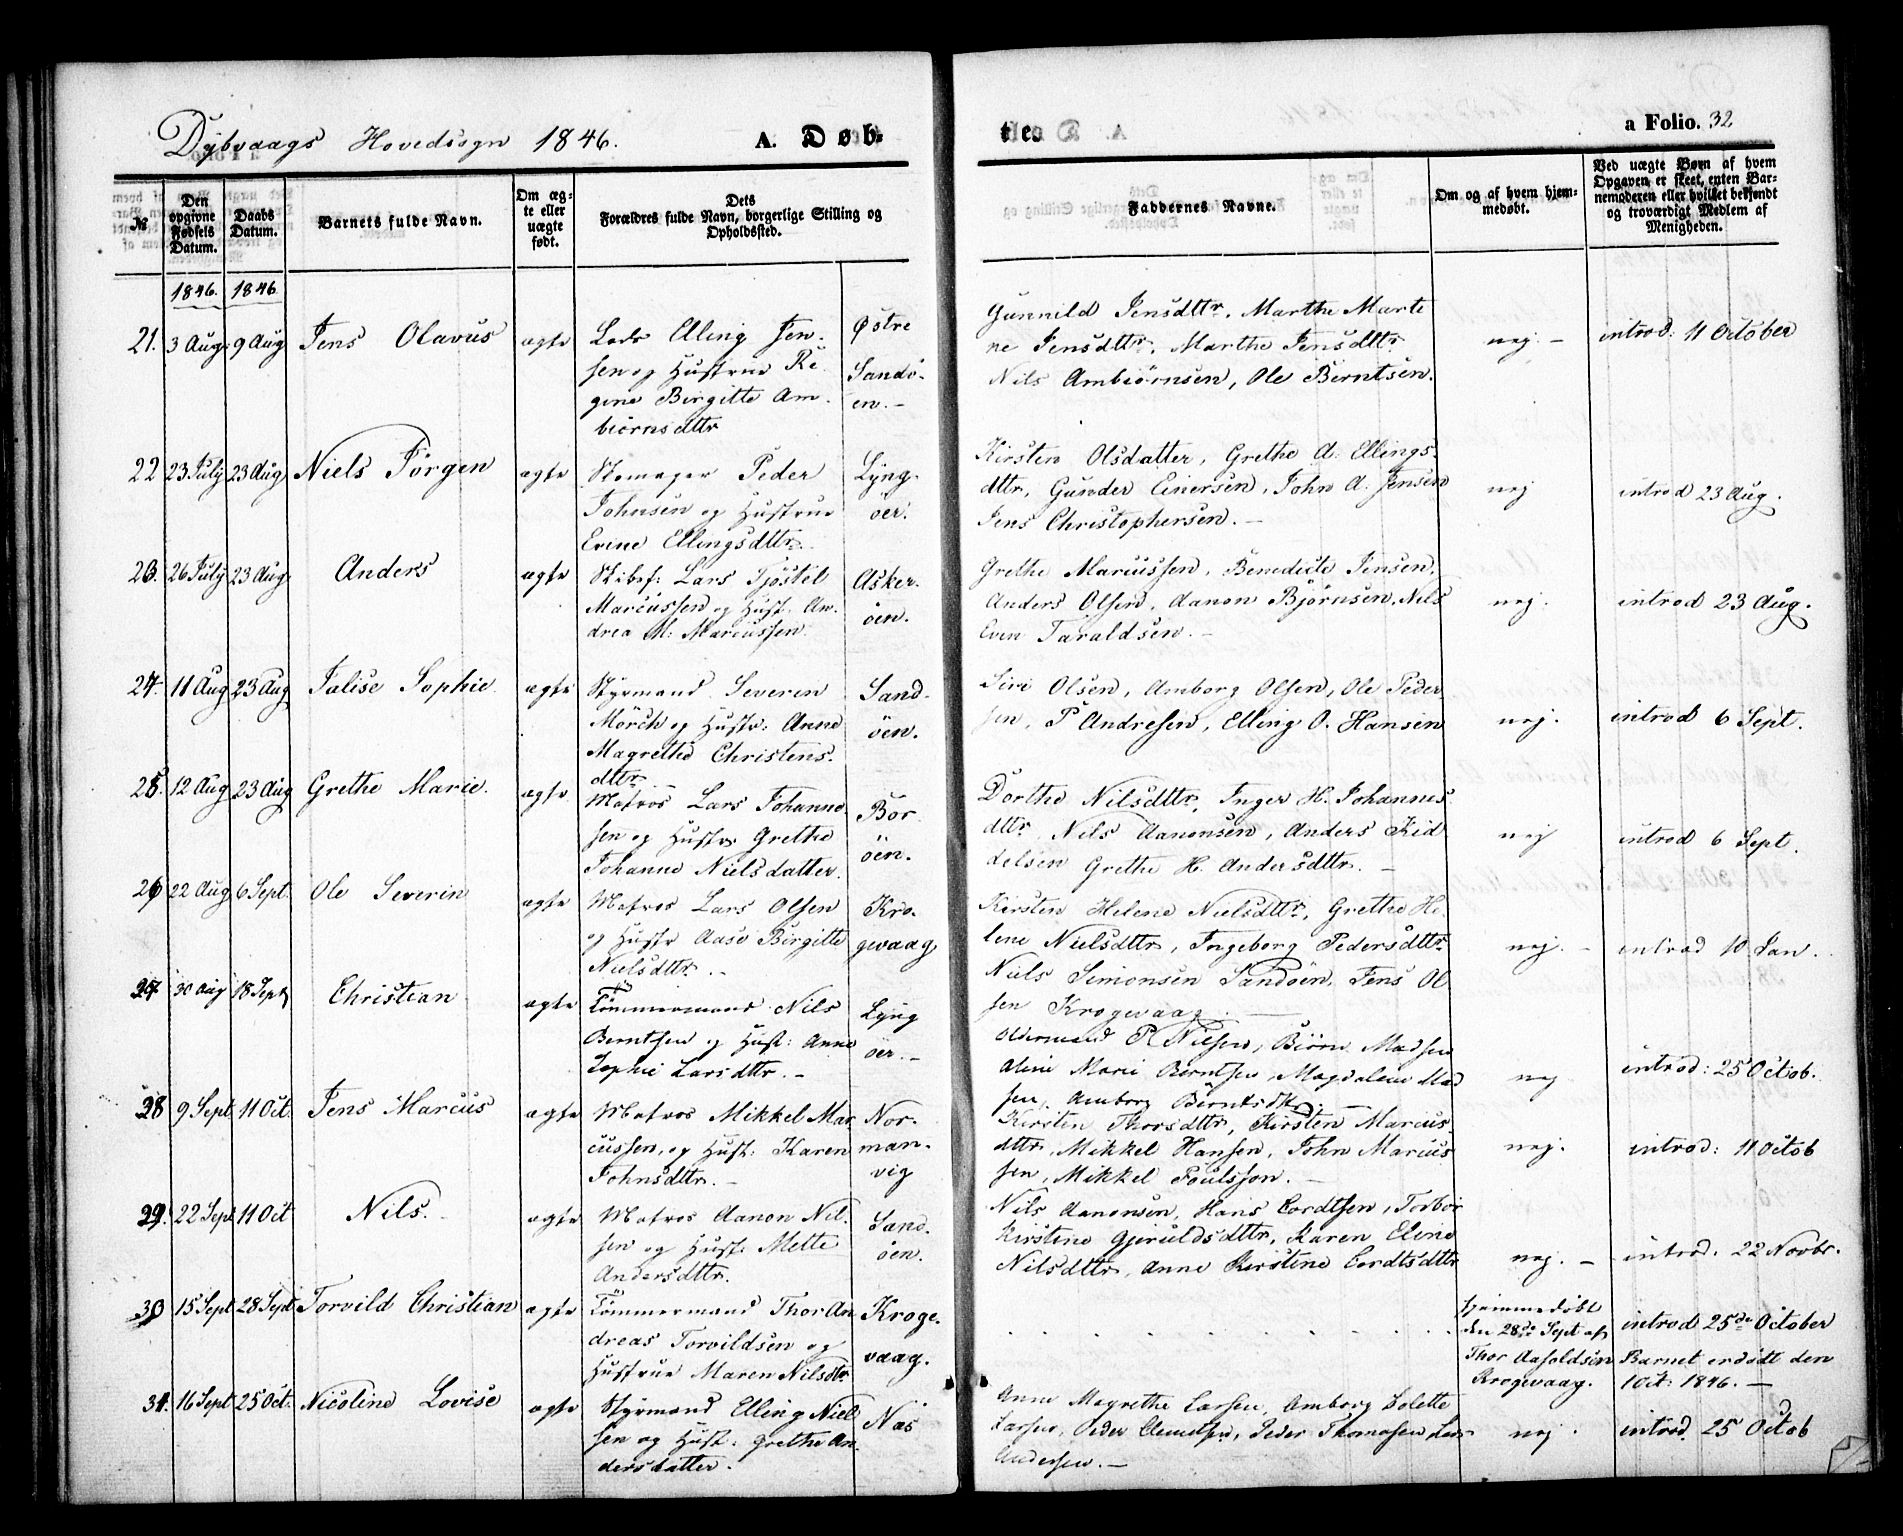 Dybvaags Hovedsogn 1846.
A. Døb-
te.
a Folio. 32
№
Den opgivne Fødsels Datum.
Daabs Datum.
Barnets fulde Navn.
Om ægte eller uægte født.
Dets Forældres fulde Navn, borgerlige Stilling og Opholdssted.
Faddernes Navne.
Om og af hvem hjemmedøbt.
Ved uægte Børn af hvem Opgaven er skeet, enten Barnemoderen eller hvilket bekjendt og troværdigt Medlem af Menigheden.
1846. 1846
21. 3 Aug. 9 Aug Jens Olavus ægte
Lods Elling Jen-
sen og Hustrue Re-
gine Birgitte Am-
biörnsdttr
Østre
Sandö-
en.-
Gunnild Jensdttr, Marthe Marte
ne Jensdttr, Marthe Jensdttr
Nils Ambiörnsen, Ole Berntsen.
nej. -
introd: 11 October
22 23 July 23 Aug Niels Jörgen ægte
Skomager Peder
Johnsen og Hustrue
Evine Ellingsdttr.
Lyng-
öer.
Kirsten Olsdatter, Grethe A. Ellings-
dttr, Gunder Einersen, John A. Jensen
Jens Christophersen. -
nej
introd 23 Aug.
23. 26 July 23 Aug Anders ægte
Skibsf: Lars Tjöstel
Marcussen og Hust. An-
drea M: Marcussen.
Asker-
öen.
Grethe Marcussen, Benedicte Jensen,
Anders Olsen, Aanon Björnsen, Nils
Even Taraldsen. -
nej.
introd 23 Aug.
24. 11 Aug 23 Aug Jalise Sophie ægte
Styrmand Severin
Mörch og Hustr: Anne
Magrethe Christens-
dttr
Sand-
öen.
Siri Olsen, Amborg Olsen, Ole Peder
sen, P Andresen, Elling O. Hansen
nej.
introd 6 Sept.
25. 12 Aug 23 Aug Grethe Marie. ægte
Matros Lars Johanne
sen og Hustr: Grethe
Johanne Nielsdatter.
Bor-
öen.
Dorthe Nilsdttr, Inger H. Johannes
dttr, Nils Aanonsen, Anders Kid
delsen Grethe H. Andersdttr. -
nej
introd 6 Sept.
26 22 Aug 6 Sept. Ole Severin ægte
Matros Lars Olsen
og Hustr Aase Birgitte
Nielsdttr. -
Kro-
gevaag
Kirsten Helene Nielsdttr, Grethe He-
lene Nielsdttr, Ingeborg Pedersdttr
Niels Simonsen Sandöen, Jens Ol
sen Krogevaag. -
nej. -
introd 10 Jan.
27 30 Aug 18 Sept Christian ægte
Tömmermand Nils
Berntsen og Hust: Anne
Sophie Larsdttr. -
Lyng
öer. -
Oldermand P. Nilsen, Biörn Madsen
Aline Marie Berntsen, Magdalene Mad
sen, Amborg Berntsdtr. -
nej
introd: 25 Octob.
28 9 Sept 11 Oct. Jens Marcus ægte
Matros Mikkel Mar-
cussen, og Hust: Karen
Johnsdttr. -
Nor-
man-
vig
Kirsten Thorsdttr, Kirsten Marcus-
dttr, Mikkel Hansen, John Marcus-
sen, Mikkel Poulsson. -
nej.
introd: 11 Octob
29. 22 Sept 11 Oct Nils. ægte
Matros Aanon Nil-
sen og Hust: Mette
Andersdttr.
Sand-
öen.
Nils Aanonsen, Hans Cordtsen, Torbor
Kirstine Gjeruldsdttr, Karen Eline
Nilsdttr, Anne Kirstine Cordtsdttr
nej. -
introd: 22 Novbr.
30 15 Sept 28 Sept Torvild Christian ægte
Tömmermand Thor An
dreas Torvildsen og
Hustrue Maren Nilsdtr
Kroge-
vaag.
hjemmedöbt
den 28de Sept af
Thor Aasoldsen
Krogevaag.
introd 25de October
Barnet er dödt den
1 Oct: 1846. -
31. 16 Sept 25 Oct. Nicoline Lovise ægte
Styrmand Elling Niel
sen og Hust: Grethe An
dersdatter.
Næs
Anne Magrethe Larsen, Amborg Colette
Larsen, Peder Clemetsen, Peder Thomasen, Lars
Andersen. -
nej.
introd. 25 Octob